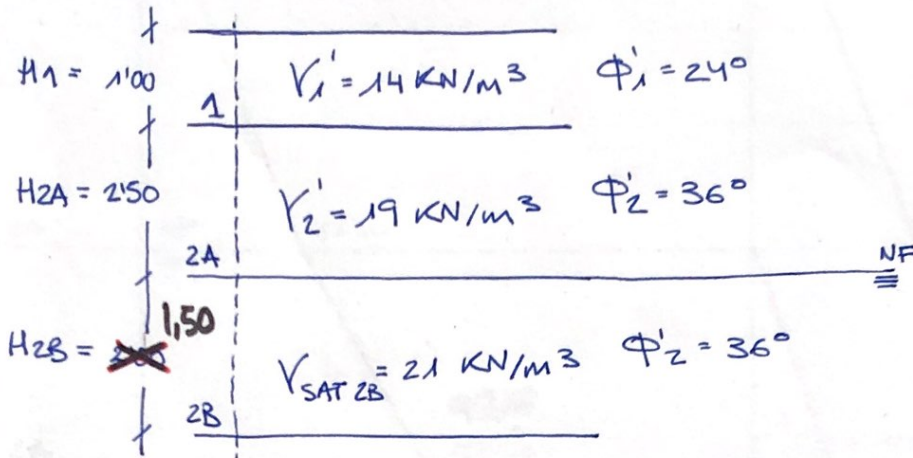 H1 = 1'00 γ1' = 14 KN/m³ Φ1' = 24°
1
H2A = 2'50 γ2' = 19 KN/m³ Φ2' = 36°
2A NF
1,50
H2B = γSAT 2B = 21 KN/m³ Φ2' = 36°
2B